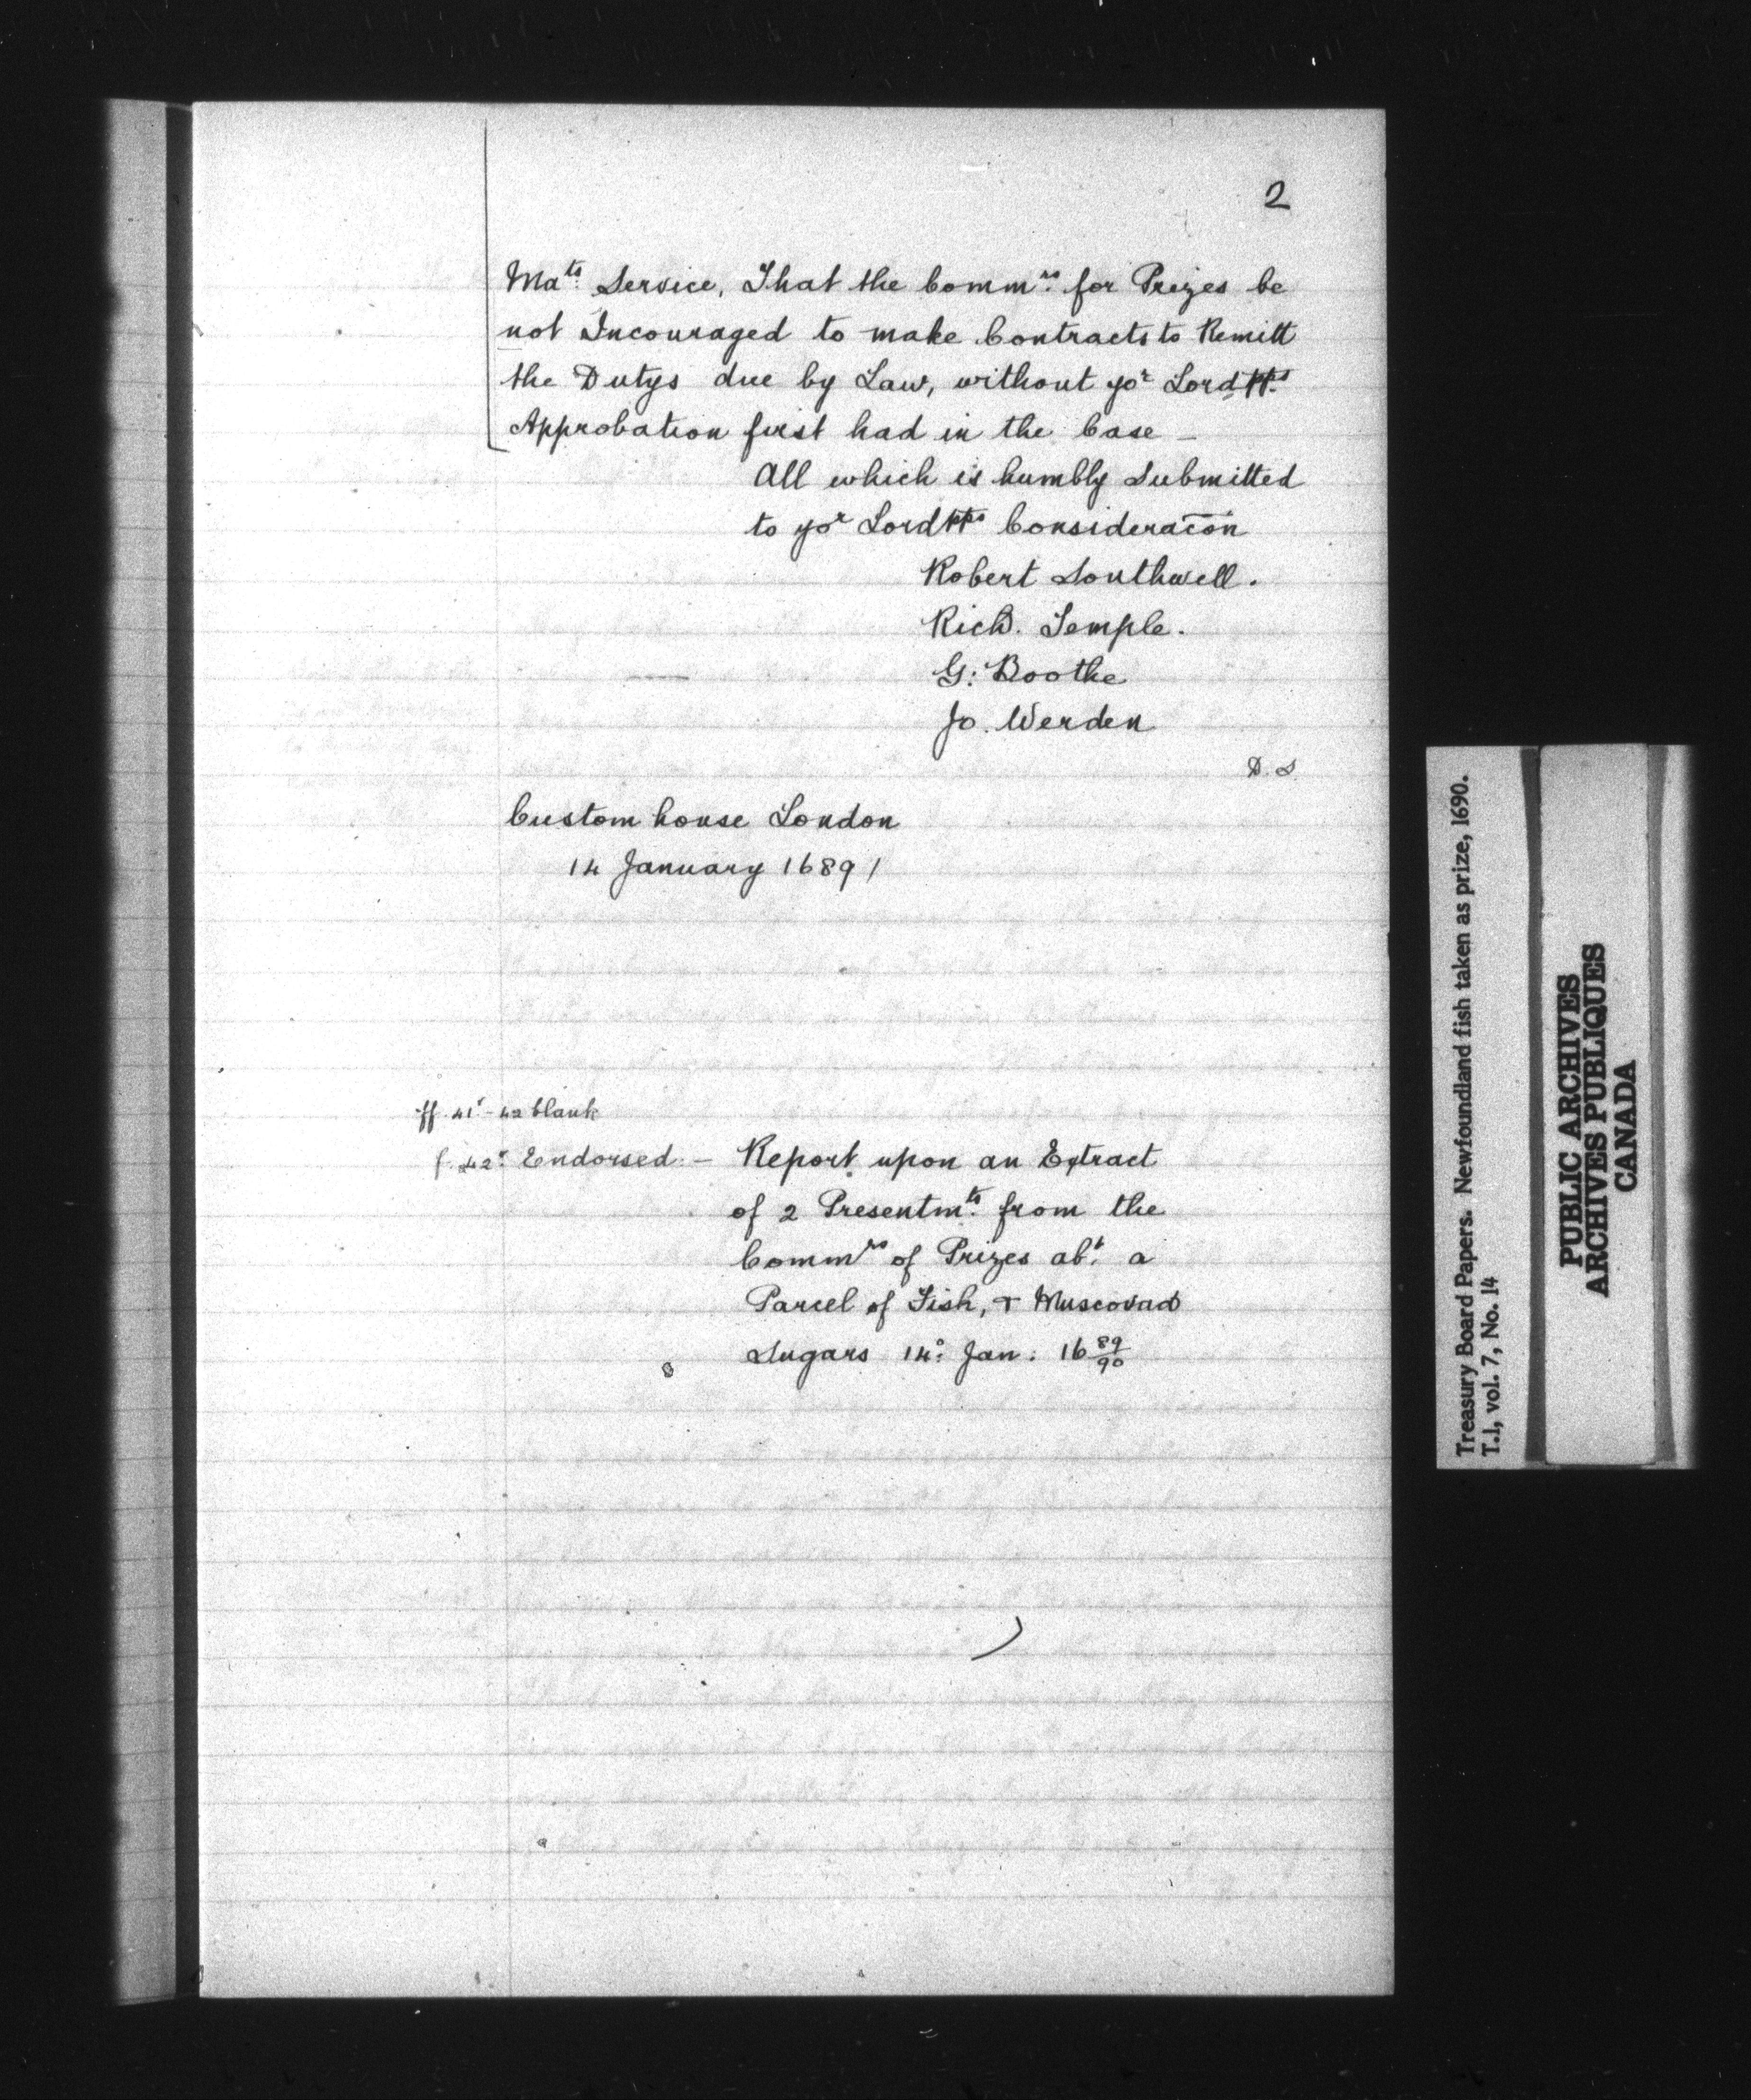 2
Ma^ts. Service, That the Comm^rs. for Prizes be
not Incouraged to make Contracts to Remitt
the Dutys due by Law, without yo^r Lordpps
Approbation first had in the Case —
All which is humbly Submitted
to yo^r Lordpps Consideracõn
Robert Southwell.
Richd. Temple.
G: Boothe
Jo. Werden
D. S.
Custom house London
14 January 1689/
ff. 41^v - 42 blank
f. 42^v. Endorsed: — Report upon an Extract
of 2 Presentm^ts. from the
Comm^rs of Prizes ab^t. a
Parcel of Fish, & Muscovad
Sugars 14^o: Jan: 16 89/90
Treasury Board Papers. Newfoundland fish taken as prize, 1690.
T.1, vol. 7, No. 14
PUBLIC ARCHIVES
ARCHIVES PUBLIQUES
CANADA